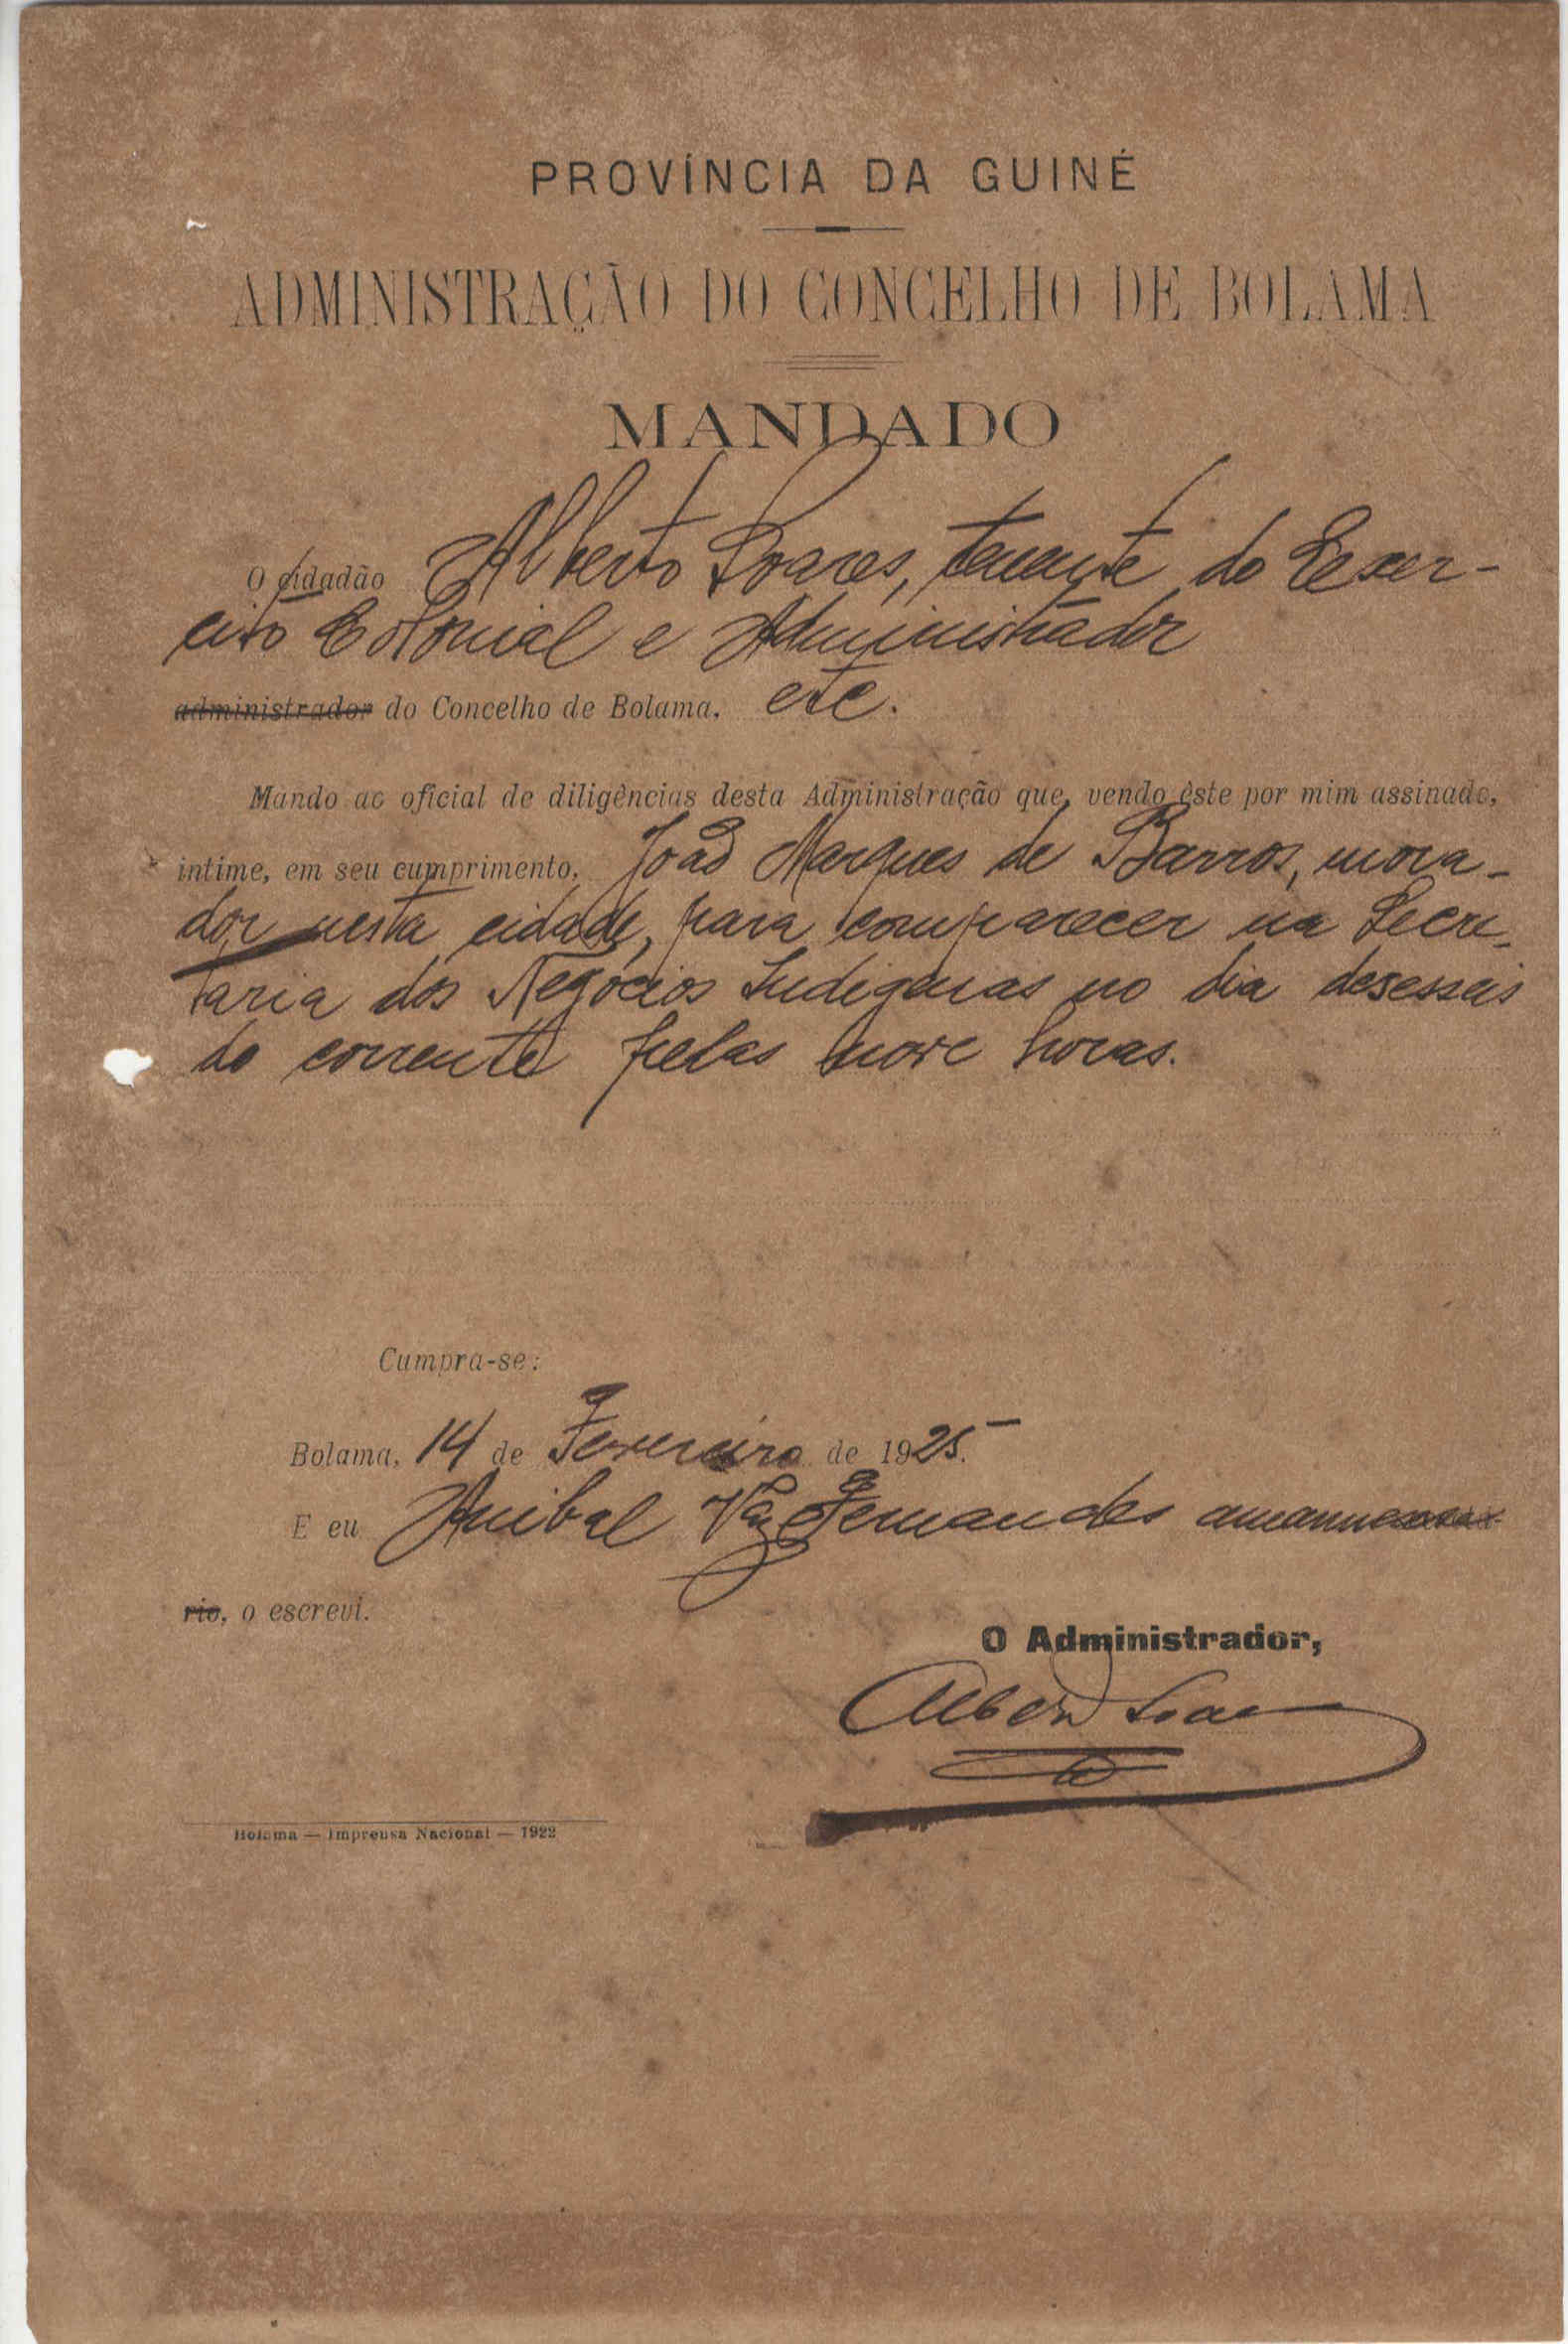 PROVÍNCIA DA GUINÉ
ADMINISTRAÇÃO DO CONCELHO DE BOLAMA
MANDADO
O cidadão Alberto Soares, tenente do Exer-
cito Colonial e Administrador
administrador do Concelho de Bolama, etc.
Mando ao oficial de diligências desta Administração que, vendo êste por mim assinado,
intime, em seu cumprimento, João Marques de Barros, mora-
dor nesta cidade, para comparecer na Secre-
taria dos Negocios Indigenas no dia desesseis
do corrente pelas nove horas.
Cumpra-se:
Bolama, 14 de Fevereiro de 1925.
E eu Anibal Vaz Fernandes
rio, o escrevi.
O Administrador,
Alberto Soares
Bolama — Imprensa Nacional — 1922